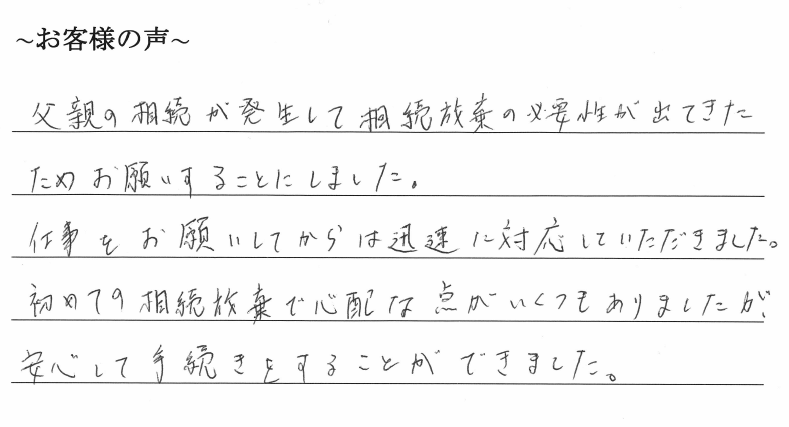 ~お客様の声~
父親の相続が発生して相続放棄の必要性が出てきた
ためお願いすることにしました。
仕事をお願いしてからは迅速に対応していただきました。
初めての相続放棄で心配な点がいくつもありましたが、
安心して手続きをすることができました。